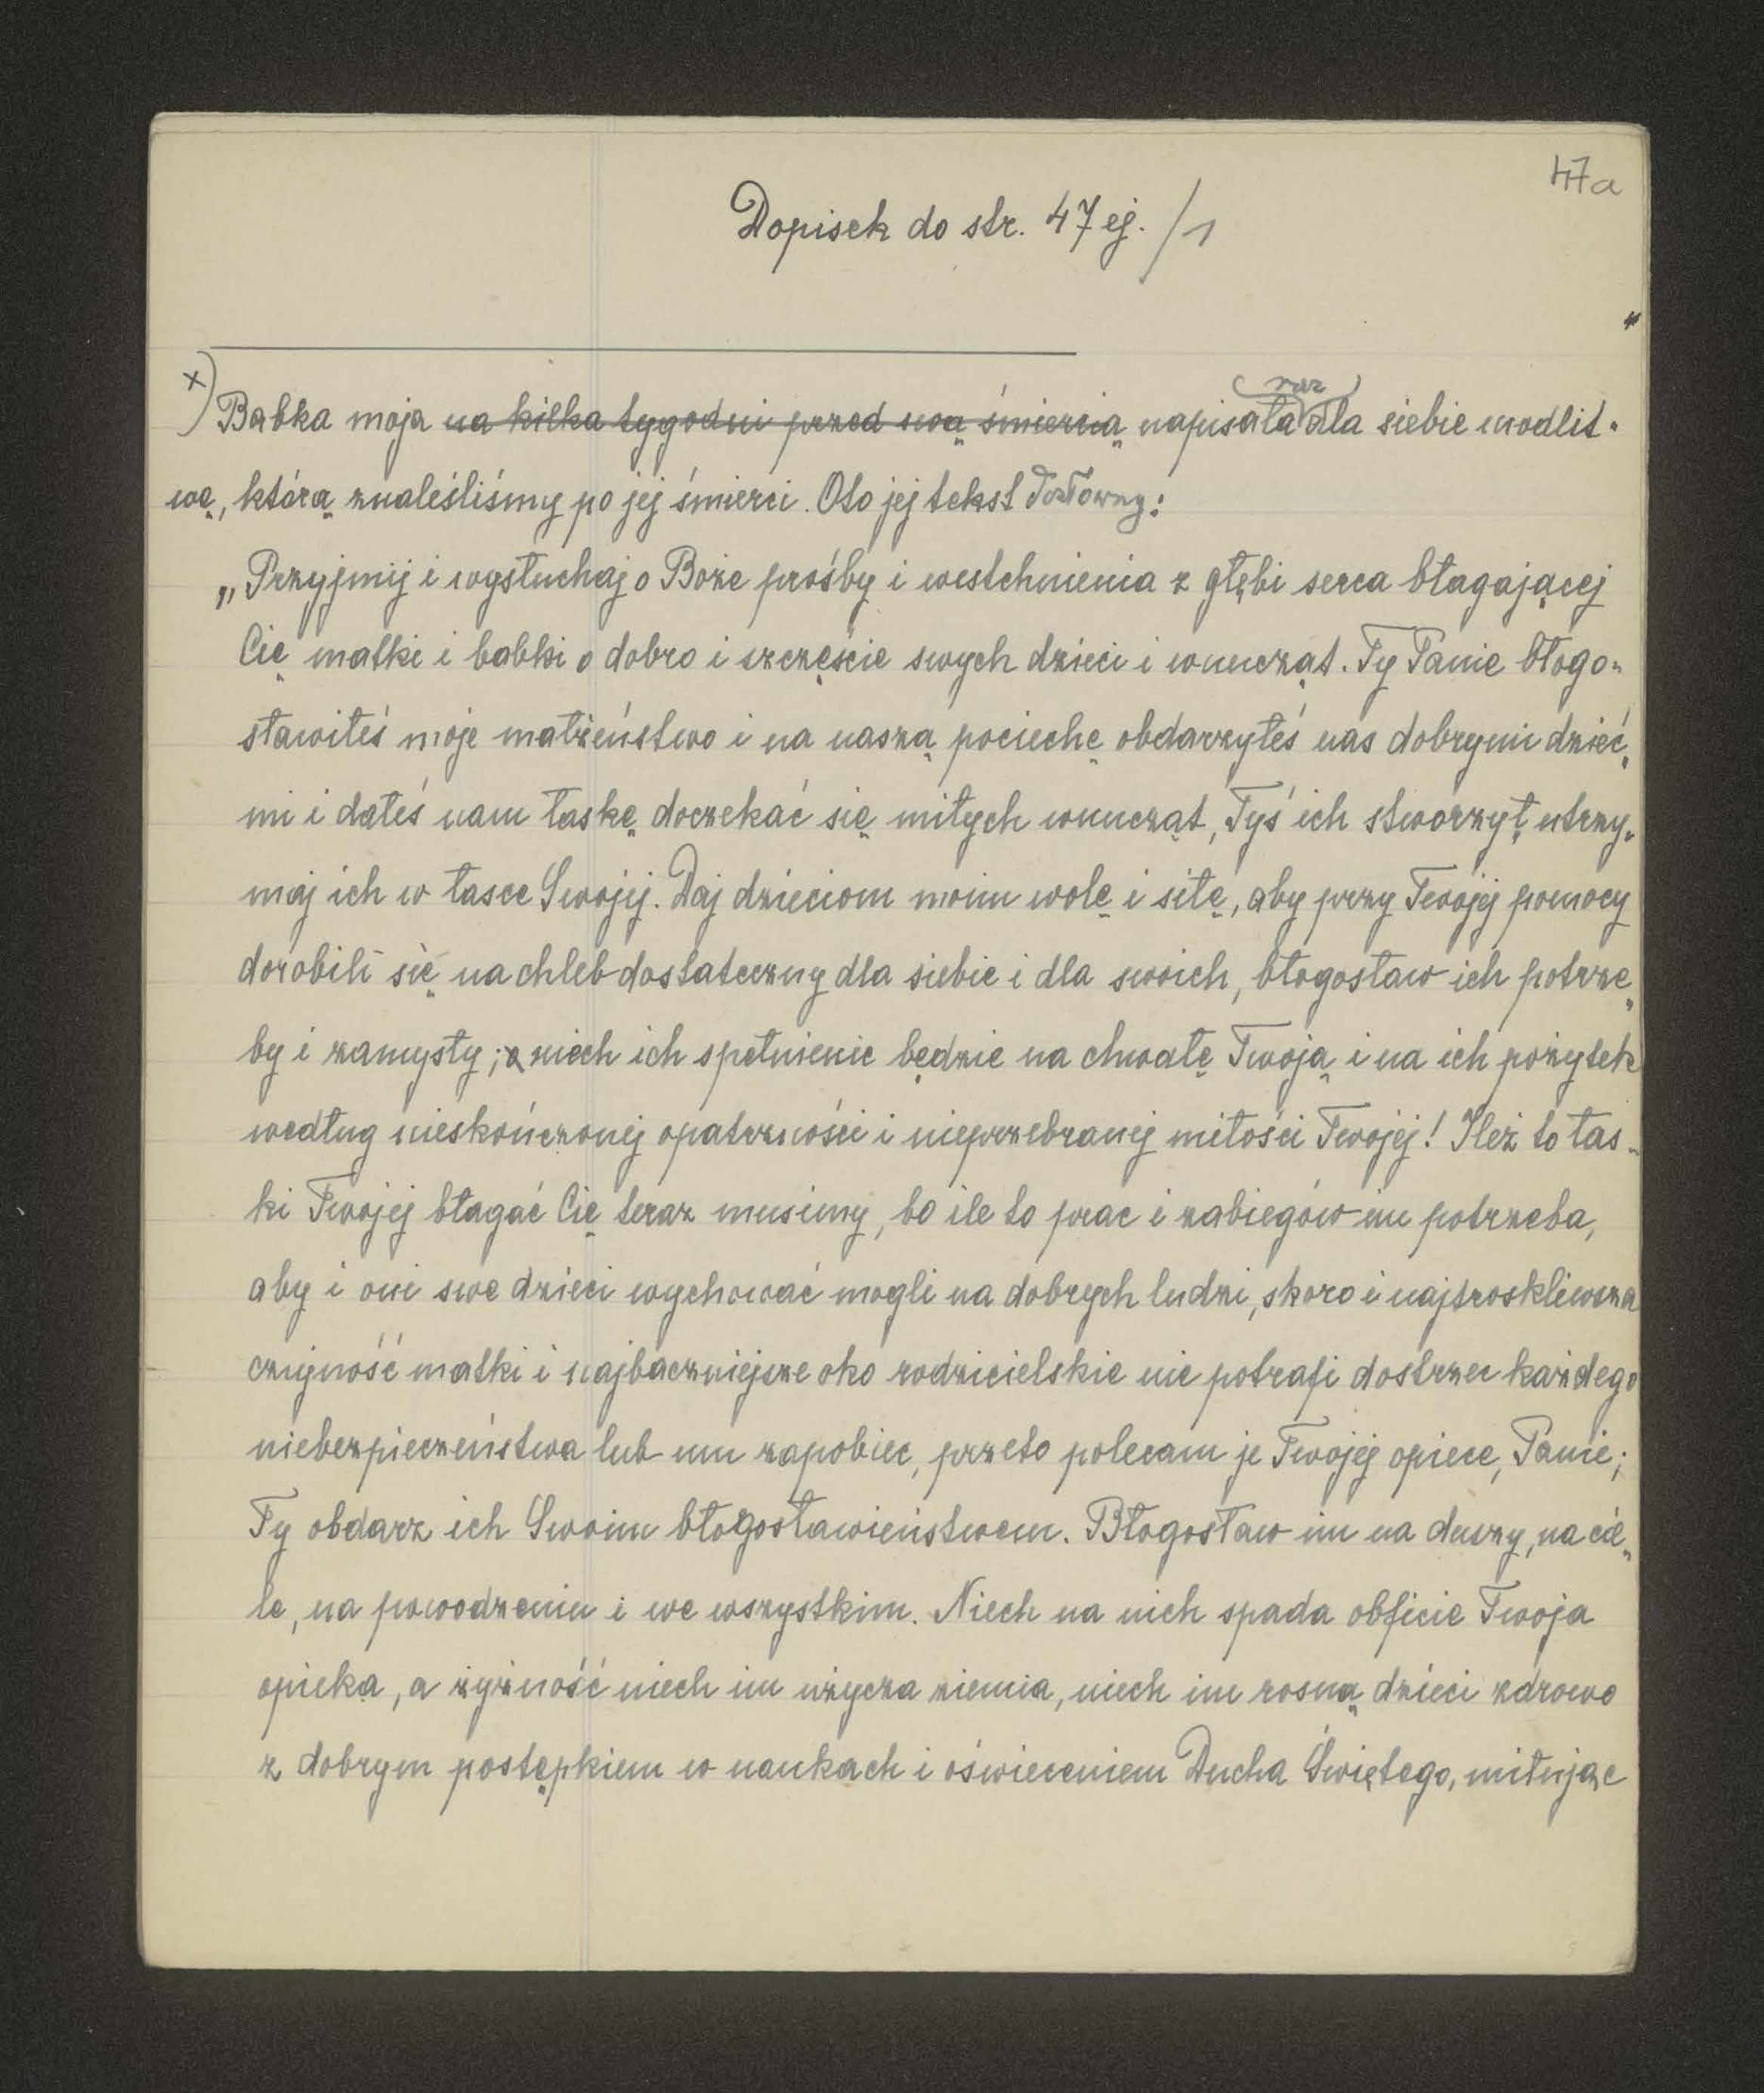 47a
Dopisek do str. 47 ej. /1
x) Babka moja na kilka tygodni przed swą śmiercią napisała raz dla siebie modlit-
wę, którą znaleśliśmy po jej śmierci. Oto jej tekst dosłowny:
„Przyjmij i wysłuchaj o Boże prośby i westchnienia z głębi serca błagającej
Cię matki i babki o dobro i szczęście swych dzieci i wnucząt. Ty Panie błogo-
sławiłeś moje małżeństwo i na naszą pociechę obdarzyłeś nas dobrymi dzieć-
mi i dałeś nam łaskę doczekać się miłych wnucząt, Tyś ich stworzył, utrzy-
maj ich w łasce Swojej. Daj dzieciom moim wolę i siłę, aby przy Twojej pomocy
dorobili się na chleb dostateczny dla siebie i dla swoich, błogosław ich potrze-
by i zamysły; a niech ich spełnienie będzie na chwałę Twoją i na ich pożytek
według nieskończonej opatrzności i nieprzebranej miłości Twojej! Ileż to łas-
ki Twojej błagać Cię teraz musimy, bo ile to prac i zabiegów im potrzeba,
aby i oni swe dzieci wychować mogli na dobrych ludzi, skoro i najtroskliwsza
czujność matki i najbaczniejsze oko rodzicielskie nie potrafi dostrzec każdego
niebezpieczeństwa lub mu zapobiec, przeto polecam je Twojej opiece, Panie;
Ty obdarz ich Swoim błogosławieństwem. Błogosław im na duszy, na cie-
le, na powodzeniu i we wszystkim. Niech na nich spada obficie Twoja
opieka, a żyzność niech im użycza ziemia, niech im rosną dzieci zdrowo
z dobrym postępkiem w naukach i oświeceniem Ducha Świętego, miłując